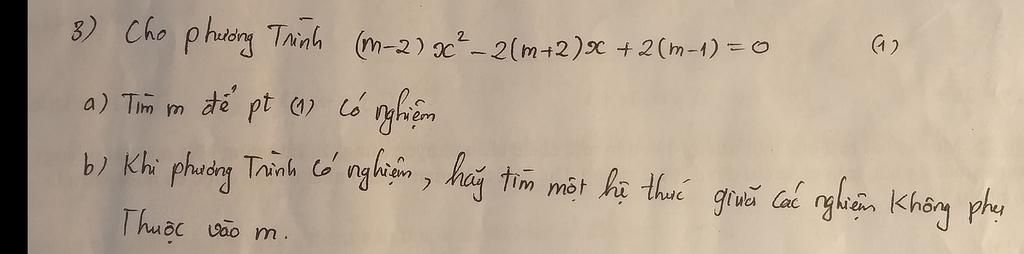 3) Cho phương Trình (m-2)x² - 2(m+2)x + 2(m-1) = 0 (1)
a) Tìm m để pt (1) có nghiệm
b) Khi phương Trình có nghiệm, hãy tìm một hệ thức giữa các nghiệm không phụ
Thuộc vào m.